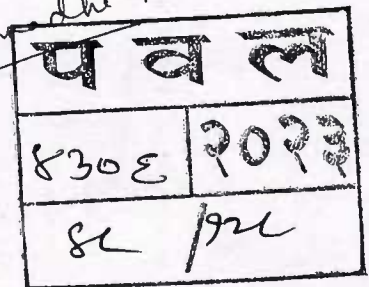 प व ल
४३०६ २०२३
४८ /